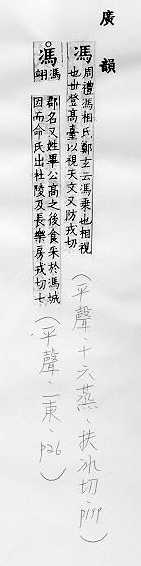 廣韻
馮
周禮馮相氏鄭玄云馮乘也相視
也世登高臺以視天文又防戎切
(平聲、十六蒸、扶冰切、p199)
馮
馮翊郡名又姓畢公高之後食采於馮城
因而命氏出杜陵及長樂房戎切七
(平聲、一東、p26)